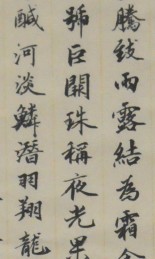 騰致雨露結為霜金
號巨闕珠稱夜光果
醎河淡鱗潛羽翔龍